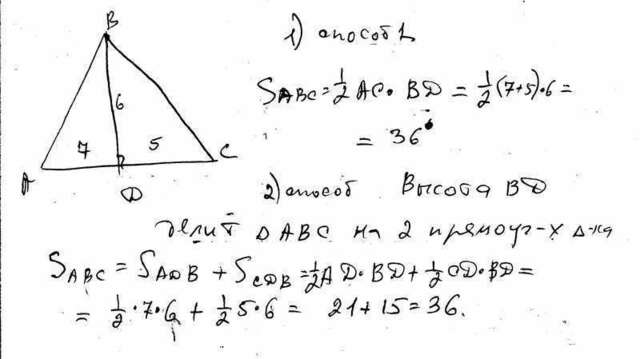 B
1) способ 1
6
S ABC = 1/2 AC · BD = 1/2 (7+5)·6 =
7 5
= 36
A D C
2) способ Высота BD
делит Δ ABC на 2 прямоуг-х Δ-ка
S ABC = S ADB + S CDB = 1/2 AD·BD + 1/2 CD·BD =
= 1/2 · 7 · 6 + 1/2 5·6 = 21 + 15 = 36.